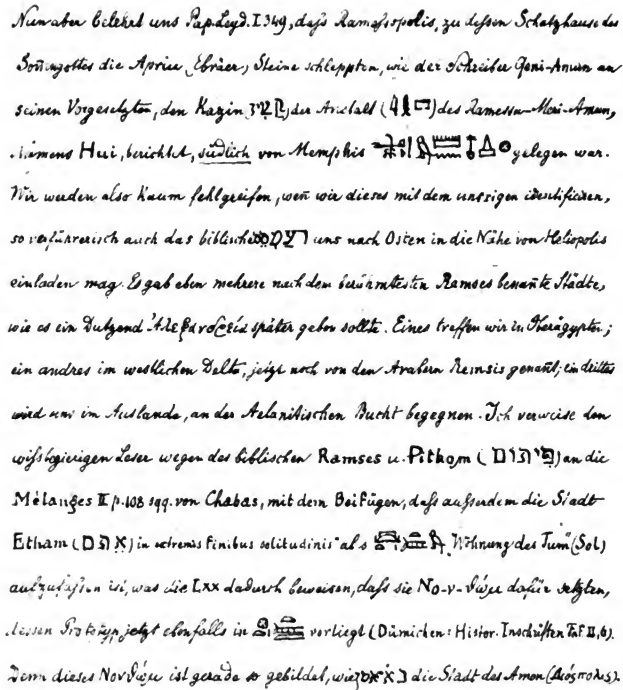 Nun aber belehrt uns Pap. Leyd. I 349, daſs Ramaſsopolis, zu deſsen Schatzhause des
Soñengottes die Apriu, Ebräer, Steine schleppten, wie der Schreiber Qeni-Amun an
seinen Vorgesetzten, den Kazin der Anstalt des Ramessu-Meri-Amun,
Namens Hui, berichtet, südlich von Memphis gelegen war.
Wir werden also kaum fehlgreifen, weñ wir dieses mit dem unsrigen identificiren,
so verführerisch auch das biblische uns nach Osten in die Nähe von Heliopolis
einladen mag. Es gab eben mehrere nach dem berühmtesten Ramses benañte Städte,
wie es ein Dutzend später geben sollte. Eines treffen wir in Oberägypten;
ein andres im westlichen Delta, jetzt noch von den Arabern Remsis genañt; ein drittes
wird uns im Auslande, an der Aelanitischen Bucht begegnen. Ich verweise den
wiſsbegierigen Leser wegen des biblischen Ramses u. Pithom (פיתום) an die
Mélanges II p. 108 sqq. von Chabas, mit dem Beifügen, daſs auſserdem die Stadt
Etham (אתם) in extremis finibus solitudinis als Wohnung des Tum (Sol)
aufzufaſsen ist, was die Lxx dadurch beweisen, daſs sie dafür setzten,
deſsen Prototyp jetzt ebenfalls in vorliegt (Dümichen: Histor. Inschriften Taf. II, 6).
Denn dieses ist gerade so gebildet, wie die Stadt des Amon (Διόσπολις).